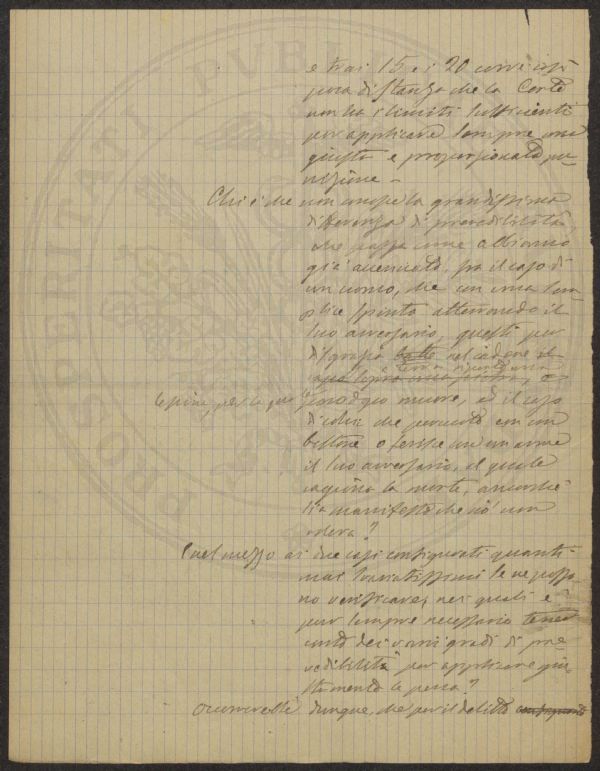 e tra i 15 e i 20 corre così
poca distanza che la Corte
non ha i limiti sufficienti
per applicare sempre una
giusta e proporzionata pu-
nizione -
Chi è che non vede la grandissima
differenza di prevedibilità
che passa come abbiamo
già accennato, fra il caso di
un uomo, che con una sem-
plice spinta atterrando il
suo avversario, questi per
disgrazia batte nel cadere
e muore, ed il caso
di colui che percuote con un
bastone o ferisce con un'arme
il suo avversario, al quale
cagiona la morte, ancorchè
sia manifesto che ciò non
voleva?
Nel mezzo ai due casi configurati quanti
mai svariatissimi se ne posso
no verificare, nei quali è
pur sempre necessario tener
conto dei varii gradi di pre-
vedibilità per applicare giu-
stamente la pena?
dunque, che per il delitto
PUBLI